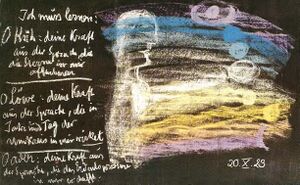 Ich muss lernen:
O Kuh: deine Kraft
aus der Sprache, die
die Sterne in mir
offenbaren
O Löwe: deine Kraft
aus der Sprache, die in
Jahr und Tag der
Umkreis in mir wirket
O Adler: deine Kraft aus
der Sprache, die das Erdentsprossene
in mir erschafft.
20. X. 23